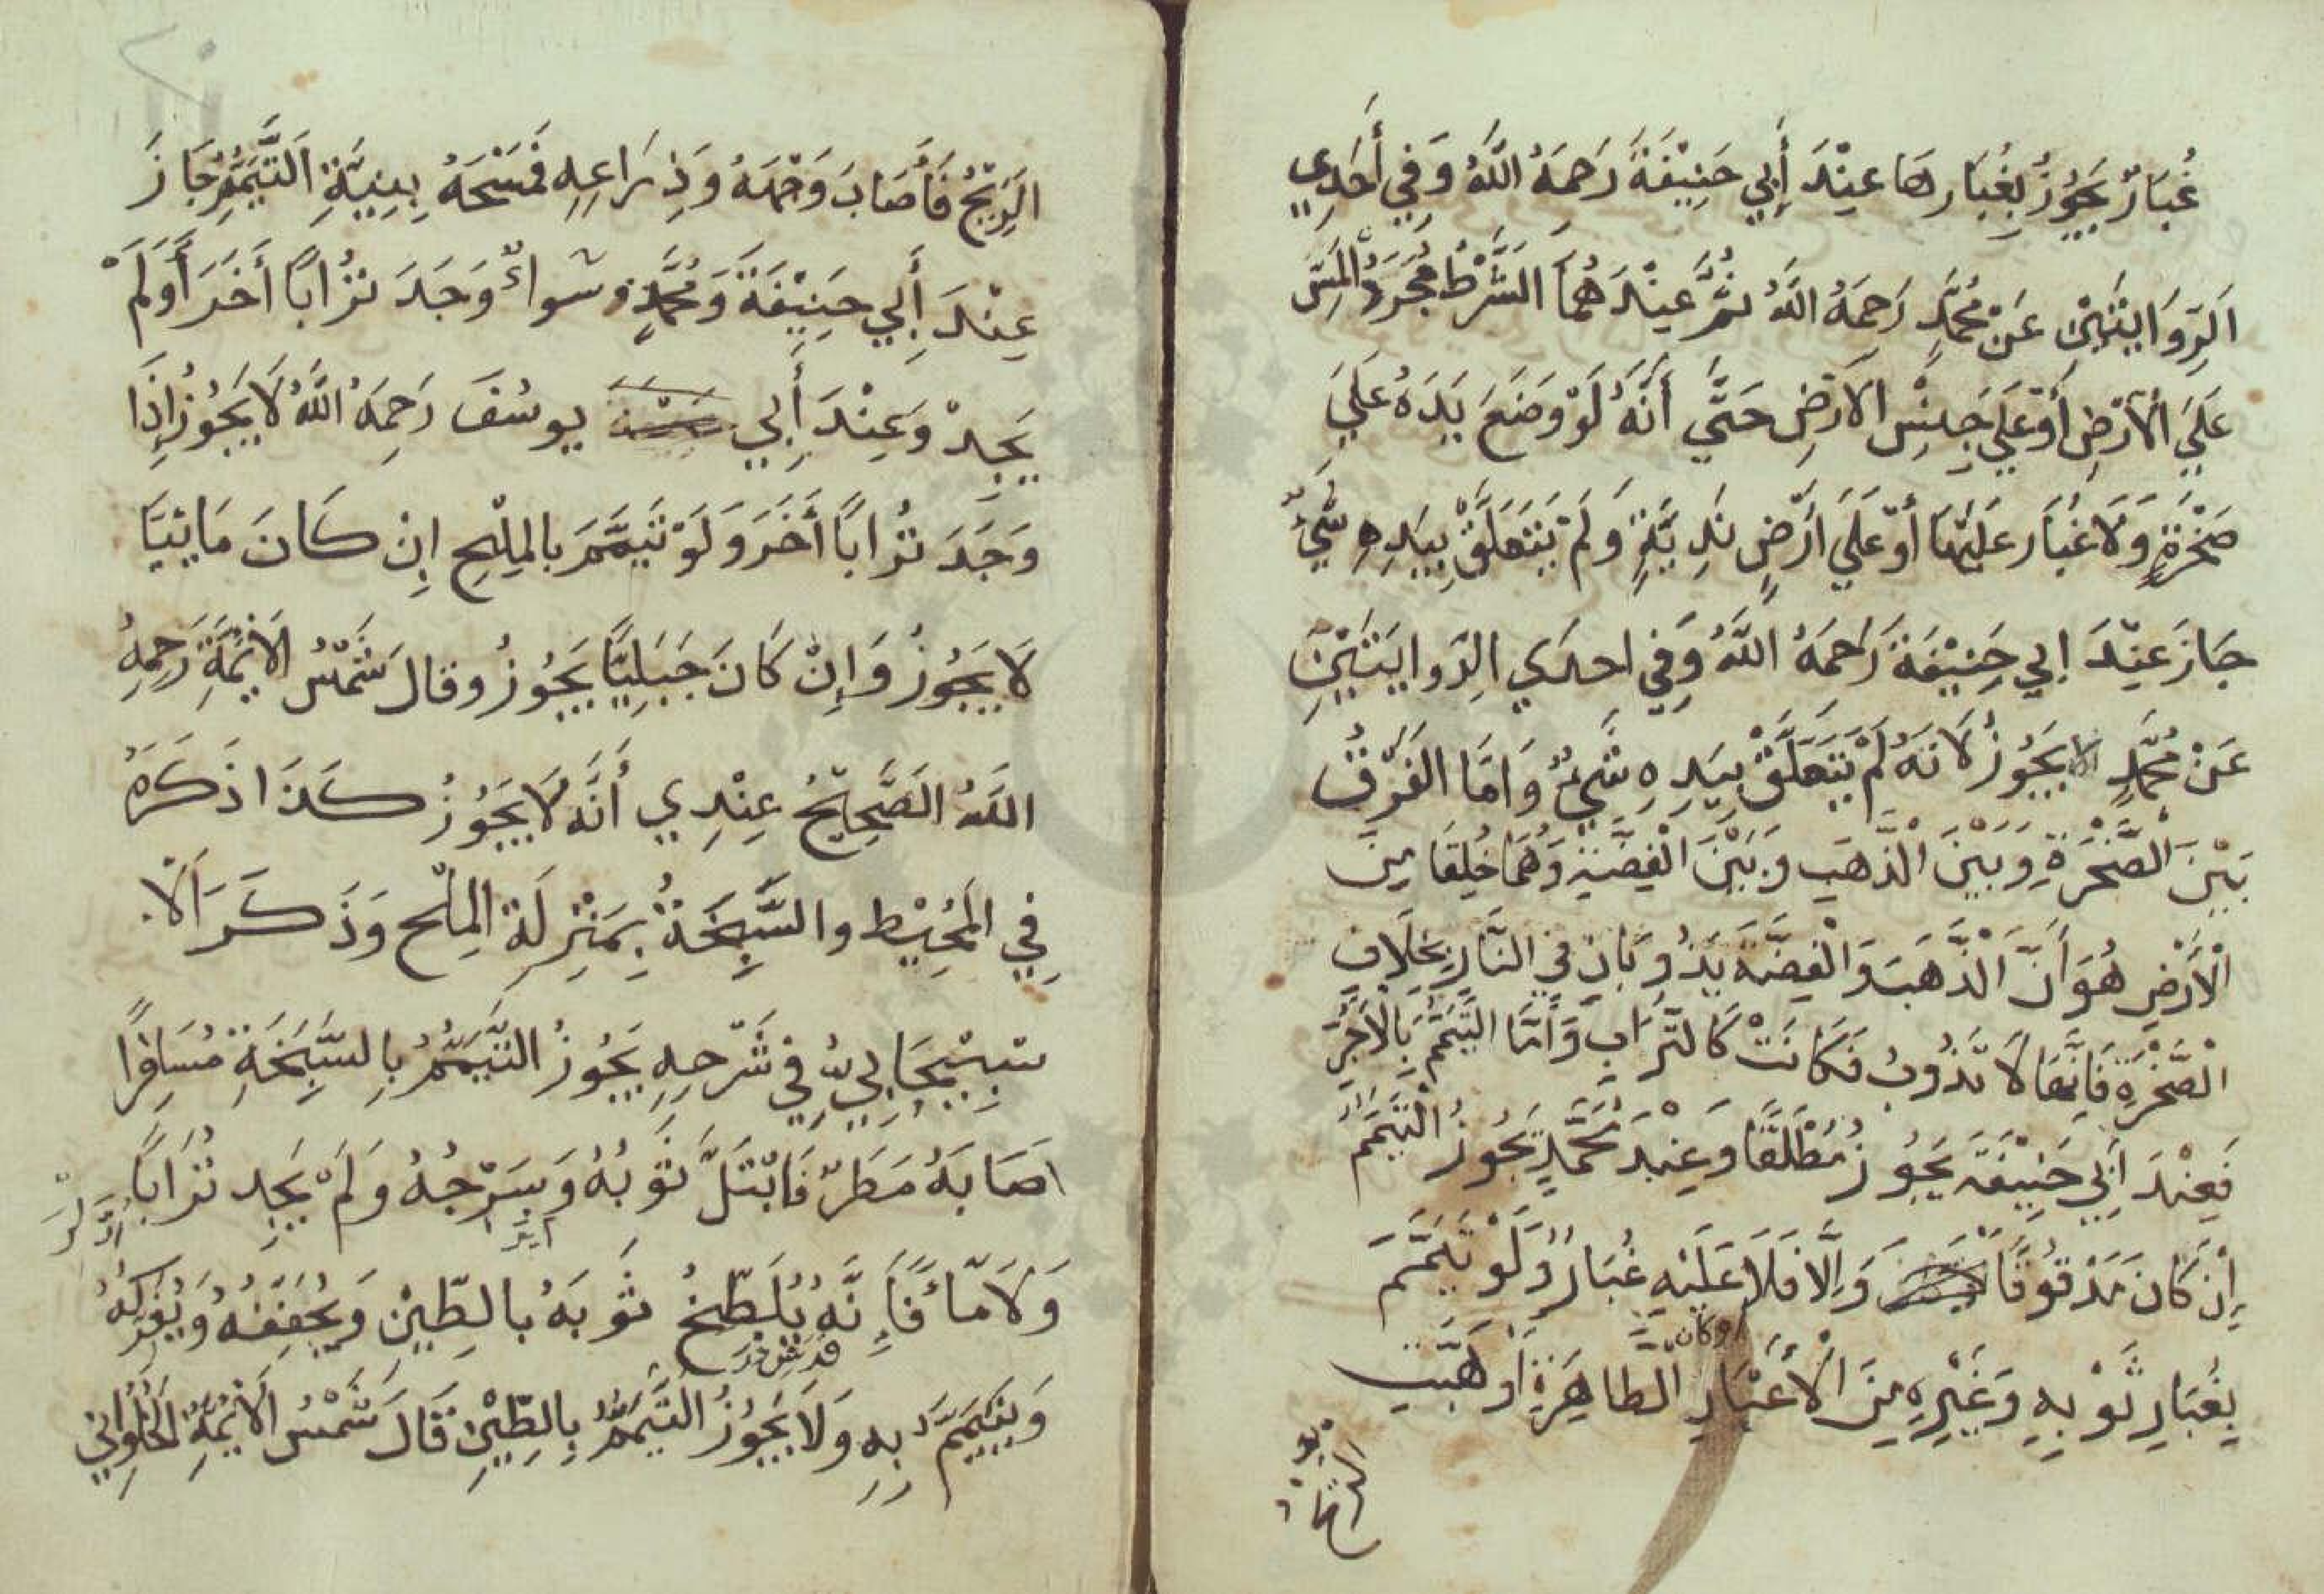 غُبَارٌ يَجُوزُ بِغُبَارِهَا عِنْدَ أَبِي حَنِيْفَةَ رَحِمَهُ اللَّهُ وَفِي أَحَدِي
اَلرِّوَايَتَيْنِ عَنْ مُحَمَّدٍ رَحِمَهُ اللَّهُ ثُمَّ عِنْدَهُمَا الشَّرْطُ مُجَرَّدُ الْمَسِّ
عَلَيَ الْأَرْضِ أَوْ عَلَي جِنْسِ الْاَرْضِ حَتَّي أَنَّهُ لَوْ وَضَعَ يَدَهُ عَلَيَ
صَخْرَةٍ وَلَا غُبَارَ عَلَيْهَا أَوْ عَلَيَ اَرْضٍ نَدِيَّةٍ وَلَمْ يَتَعَلَّقْ بِيَدِهِ شَيْءٌ
جَازَ عِنْدَ ابِي حَنِيْفَةَ رَحِمَهُ اللَّهُ وَفِي احدَي الِرّوايَتَيْنِ
عَنْ مُحَمَّدٍ لا يَجُوزُ لَانَهُ لَمْ يَتَعَلَّقْ بِيَدِهِ شَيْءٌ وَامَّا الفَرْقُ
بَيْنَ الصَّخْرَةِ وَبَيْنَ الْذَّهَبِ وَبَيْنَ الْفِضَّةِ وَهُمَا خُلِقَا مِنَ
الْأَرْضِ هُوَ اَنَّ الْذَّهَبَ وَالْفِضَّةَ يَذُوبَانِ فِي النَّارِ بِخِلَافِ
الْصَّخْرَةِ فَاِنَّهَا لَا تَذُوبُ فَكَانَتْ كَالتُّرَابِ وَأَمَّا التَّيَمُّمُ بِالْاَجُرِّ
فَعِنْدَ اَبِي حَنِيْفَةَ يَجُوزُ مُطْلَقًا وَعِنْدَ مُحَمَّدٍ يَجُوزُ الْتَّيَمُّمُ
اِنْ كَانَ مَدْقُوقًا وَاِلَّا فَلَا عَلَيْهِ غُبَارٌ وَلَوْ تَيَمَّمَ
اوكان
بِغُبَارِ ثَوْبِهِ وَغَيْرِهِ مِنَ الْأَعْيَارِ الْطَاهِرَةِ اَوْ هَبَّتِ
الريح
الَرِيْحُ فَاَصَابَ وَجْهَهُ وَذِرَاعِهِ فَمَسَحَهُ بِنِيَّةِ اَلتَّيَمُّمِ جَازَ
عِنْدَ أَبِي حَنِيْفَةَ وَمُحَمَّدٍ سَوَاءٌ وَجَدَ تُرَابًا أَخَرَ أَوَلَمْ
يَجِدْ وَعِنْدَ أَبِي يوسُفَ رَحِمَهُ اللَّهُ لَا يَجُوزُ إِذَا
وَجَدَ تُرَابًا أَخَرَ وَلَوْ تَيَمَّمَ بالمِلْحِ اِنْ كَانَ مَائِيَّا
لَا يَجُوزُ وَاِنْ كَانَ جَبَلِيًّا يَجُوزُ وقالَ شَمْسُ الَائِمَّةِ رَحِمِهُ
اللَّهُ الصَّحِيْحُ عِنْدِي أَنَّهُ لَا يَجُوزُ كَذَا ذَكَرَهُ
فِي الْمُحِيْطِ والسَّبِخَةُ بِمَنْزِلَةِ المِلْحِ وَذَكَرَ الْا
سْبِيْجَابِيُّ فِي شَرْحِهِ يَجُوزُ التَّيَمُّمُ بِالسَّبَخَةِ مُسَافِرًا
اصَابَهُ مَطَرٌ فَابْتَلَّ ثَوْبُهُ وَسَرْجُهُ وَلَمْ يَجِد تُرَابًا
وَلَا مَاءً فَإِنَّهُ يُلَطِّخُ ثَوبَهُ بالطِّيْنِ وَيُجَفِّفُهُ وَيُفْرِكُهُ
وَيَتَيَمَّمَ بِهِ وَلَا يَجُوزُ التَّيَمُّمُ بِالطِّيْنِ قَالَ شَمْسُ الْاَئِمَّةِ الحَلْوَانِي